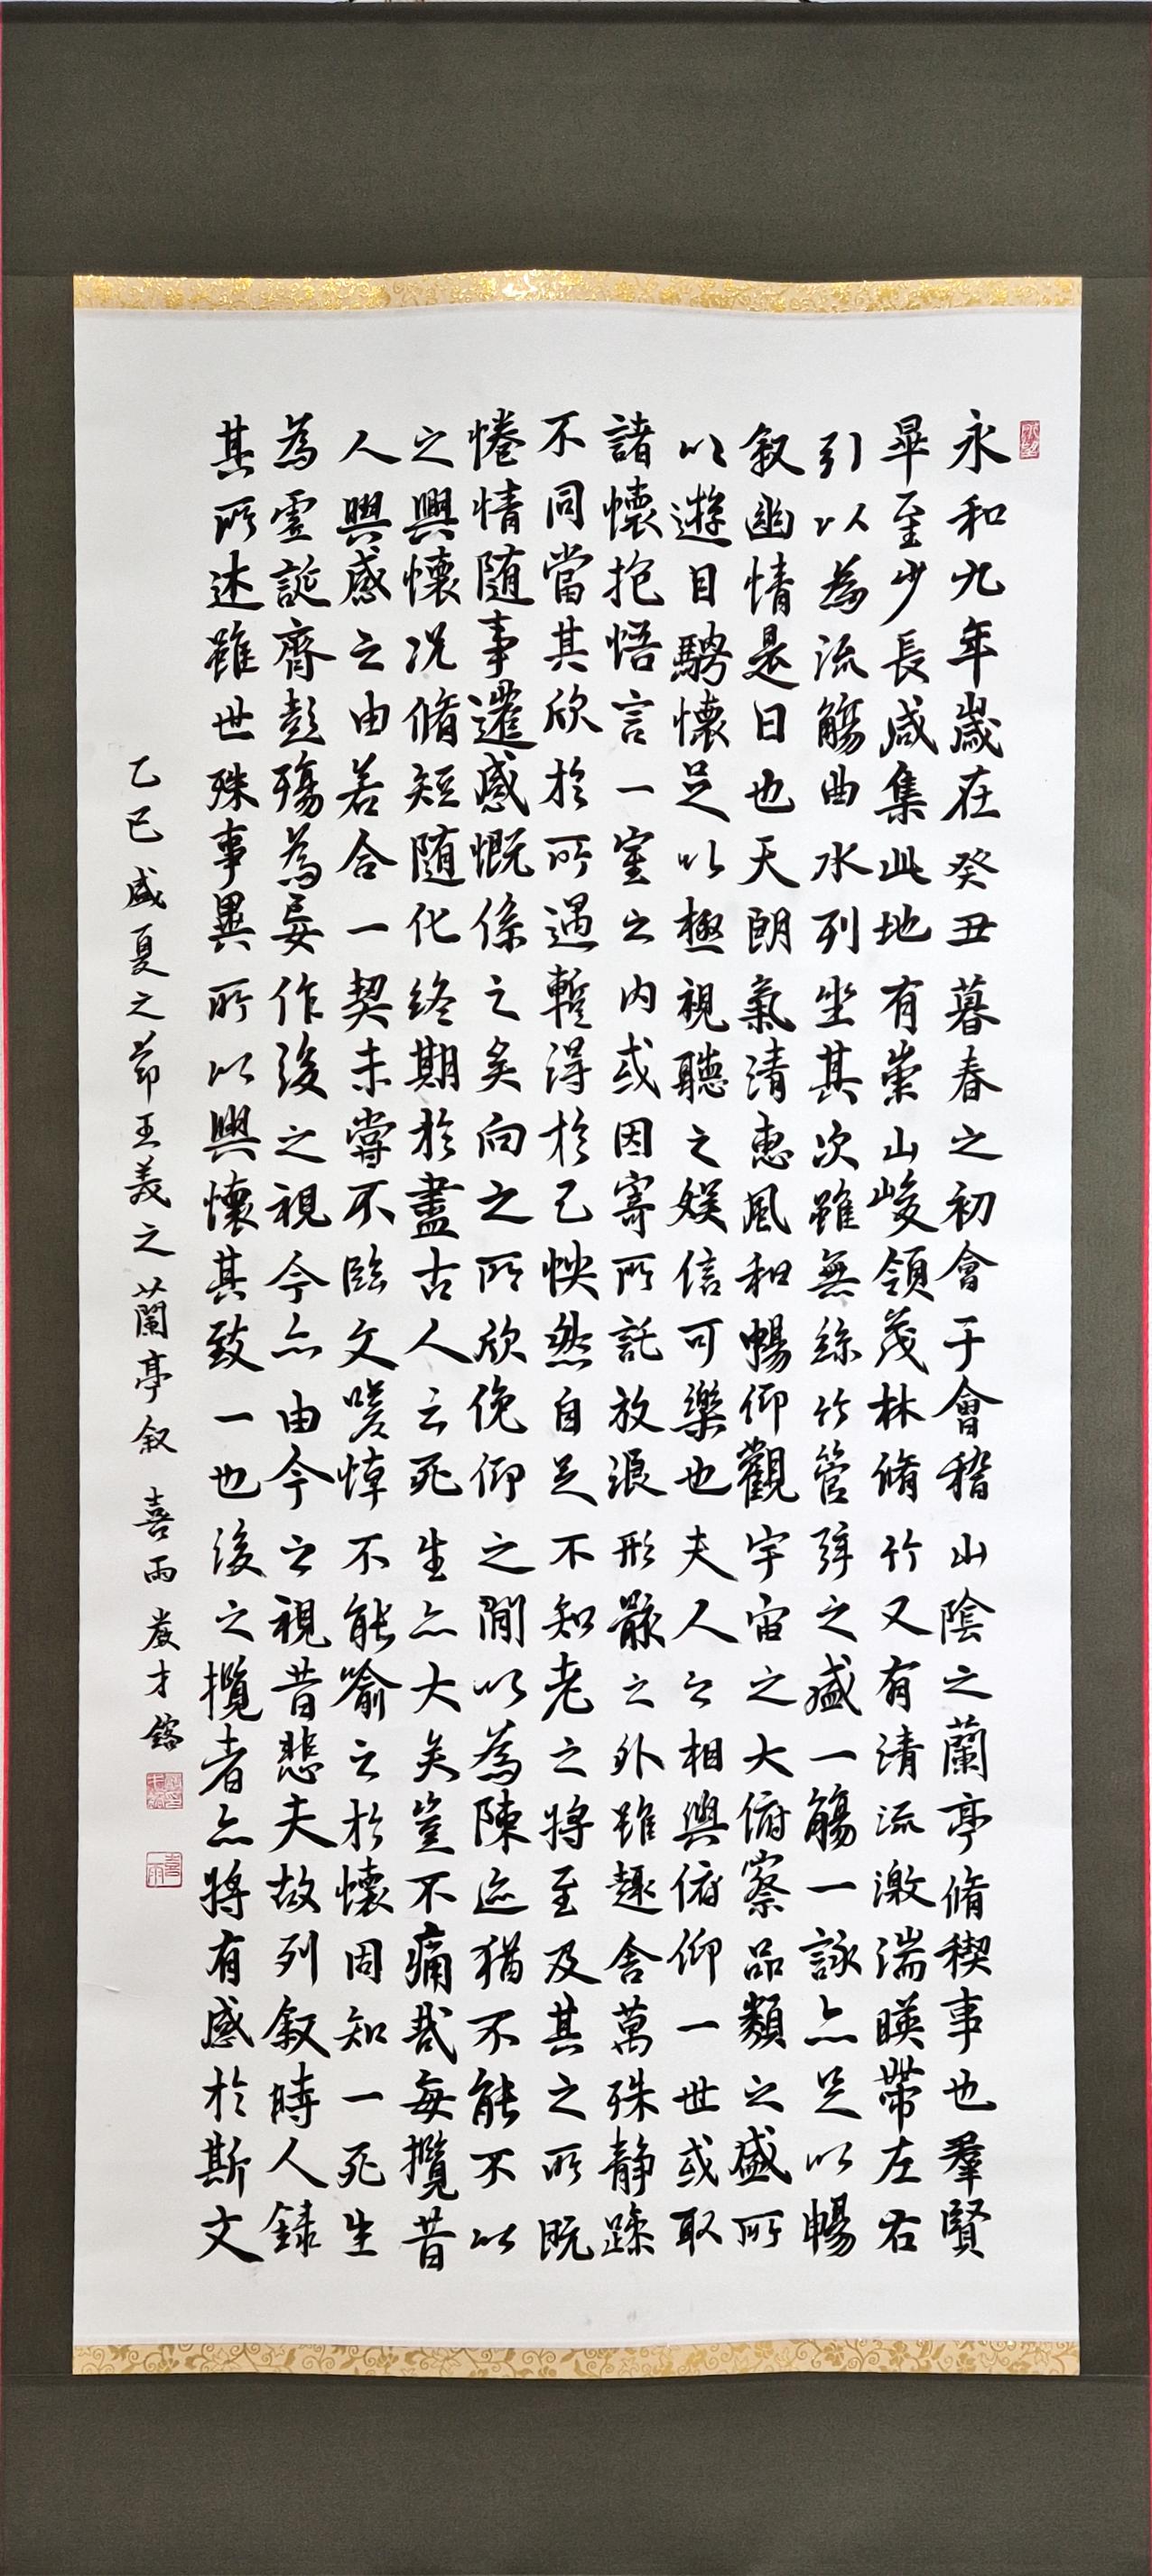 永和九年歲在癸丑暮春之初會于會稽山陰之蘭亭脩稧事也羣賢
畢至少長咸集此地有崇山峻領茂林脩竹又有清流激湍暎帶左右
引以為流觴曲水列坐其次雖無絲竹管弦之盛一觴一詠亦足以暢
叙幽情是日也天朗氣清惠風和暢仰觀宇宙之大俯察品類之盛所
以遊目騁懷足以極視聽之娛信可樂也夫人之相與俯仰一世或取
諸懷抱悟言一室之內或因寄所託放浪形骸之外雖趣舍萬殊靜躁
不同當其欣於所遇暫得於己怏然自足不知老之將至及其之所既
惓情隨事遷感慨係之矣向之所欣俛仰之閒以為陳迹猶不能不以
之興懷況脩短隨化終期於盡古人云死生亦大矣豈不痛哉每攬昔
人興感之由若合一契未嘗不臨文嗟悼不能喻之於懷固知一死生
為虛誕齊彭殤為妄作後之視今亦由今之視昔悲夫故列叙時人錄
其所述雖世殊事異所以興懷其致一也後之攬者亦將有感於斯文
乙巳盛夏之節王羲之蘭亭叙 喜雨 才